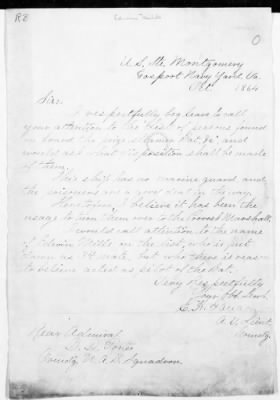 RE
Edwin Mills
O
U.S. Str. Montgomery
Gosport Navy Yard Va.
Oct. 1864
Sir:
I respectfully beg leave to call
your attention to the list of persons found
on board the prize steamer Bat, and
would ask what disposition shall be made
of them.
This ship has no marine guard and
the prisoners are a good deal in the way.
Heretofore, I believe it has been the
usage to turn them over to the Provost Marshall.
I would call attention to the name
of Edwin Mills on the list, who is put
down as mate, but who there is reason
to believe acted as pilot of the Bat.
Very respectfully
Your Obt Servt
A. V. Lieut
Comdg.
Rear Admiral
D. D. Porter
Comdg N. A. B. Squadron.